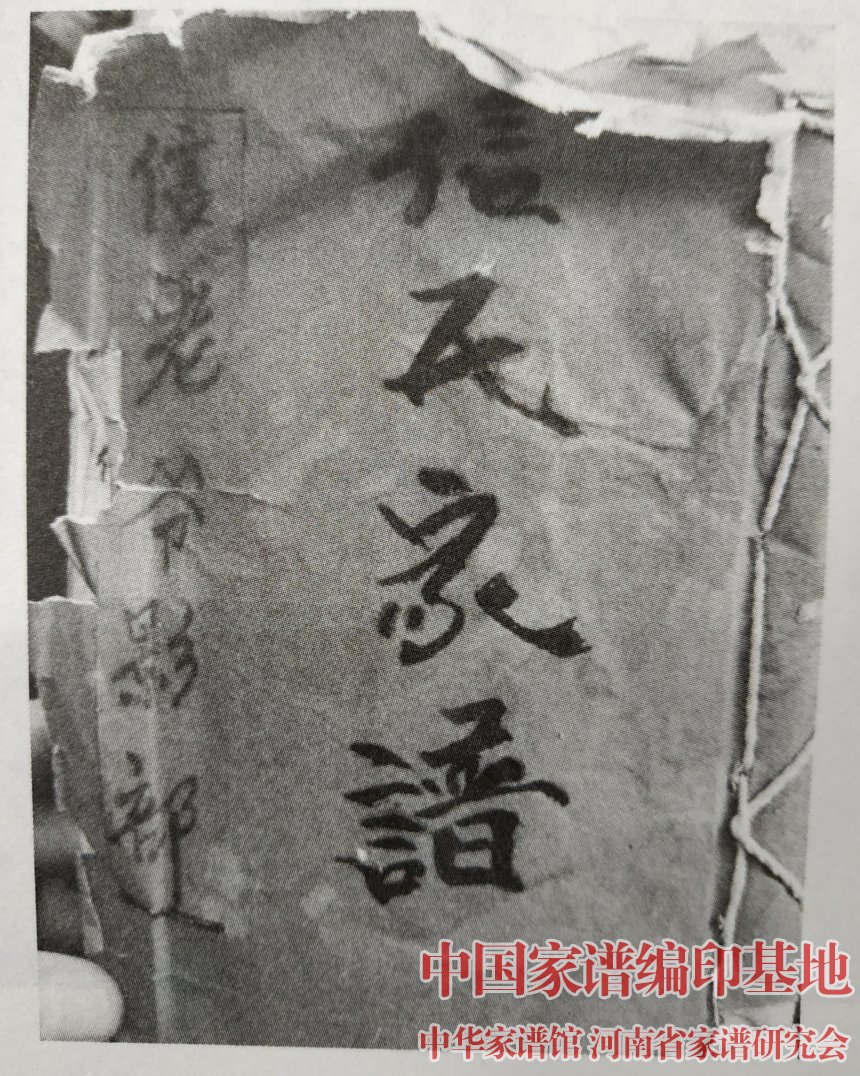 氏家譜
老
影部
中国家谱编印基地
中华家谱馆 河南省家谱研究会